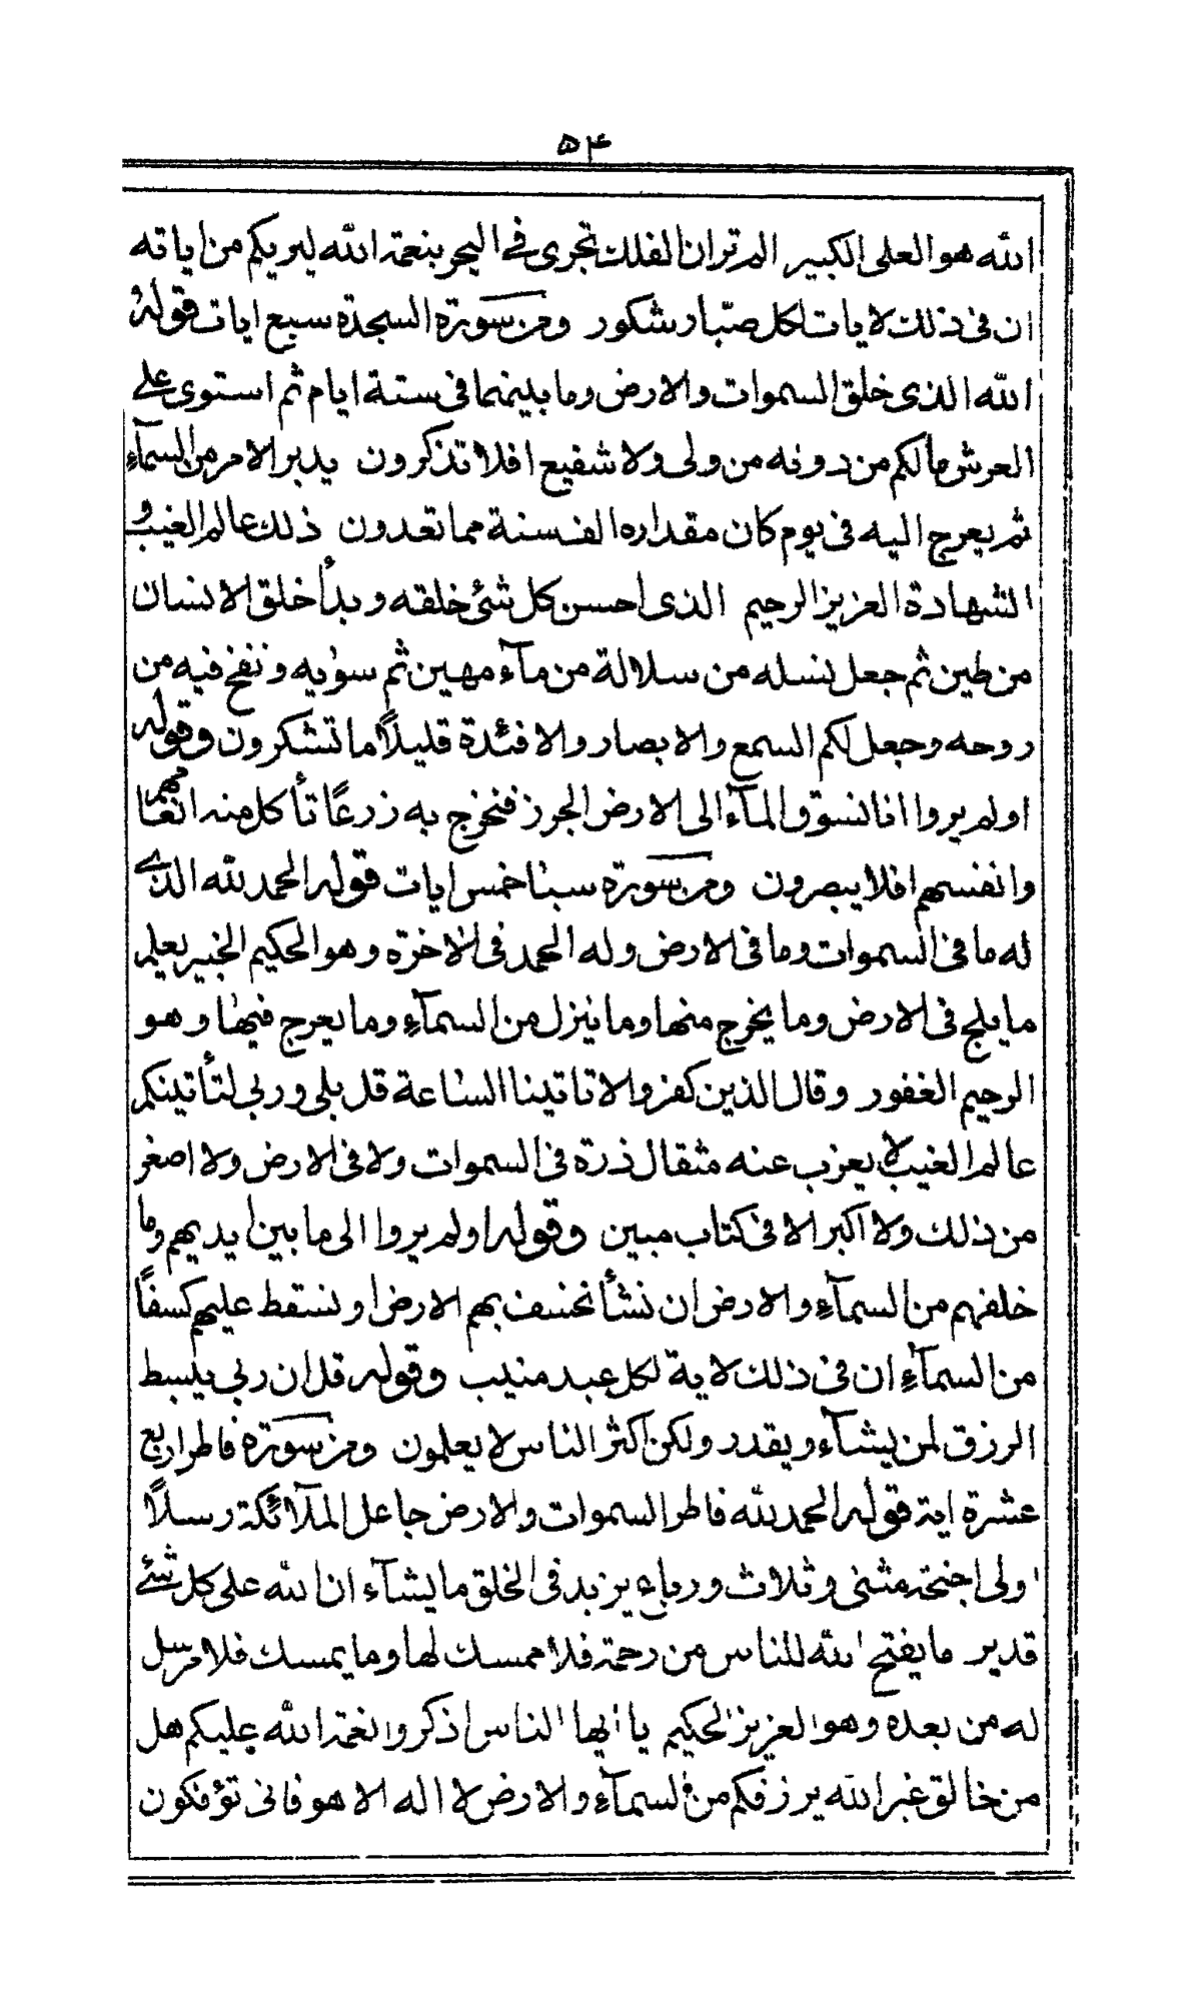 ۵۴
الله هو العلى الكبير الم تر ان الفلك تجرى فى البحر بنعمة الله ليريكم من اياته
ان فى ذلك لايات لكل صبّار شكور ومن سورة السجدة سبع ايات قوله
الله الذى خلق السموات والارض وما بينهما فى ستة ايام ثم استوى على
العرش مالكم من دونه من ولى ولا شفيع افلا تذكرون يدبر الامر من السمآء
ثم يعرج اليه فى يوم كان مقداره الف سنة مما تعدون ذلك عالم الغيب و
الشهادة العزيز الرحيم الذى احسن كل شئ خلقه وبدأ خلق الانسان
من طين ثم جعل نسله من سلالة من مآء مهين ثم سوٰيه ونفخ فيه من
روحه وجعل لكم السمع والابصار والافئدة قليلاً ما تشكرون وقوله
اولم يروا انا نسوق المآء الى الارض الجرز فنخرج به زرعًا تأكل منه انعامهم
وانفسهم افلا يبصرون ومن سورة سبا خمس ايات قوله الحمد لله الذى
له ما فى السموات وما فى الارض وله الحمد فى الاخرة وهو الحكيم الخبير يعلم
ما يلج فى الارض وما يخرج منها وما ينزل من السمآء وما يعرج فيها وهو
الرحيم الغفور وقال الذين كفروا لا تاتينا الساعة قل بلى وربى لتأتينكم
عالم الغيب لا يعزب عنه مثقال ذرة فى السموات ولا فى الارض ولا اصغر
من ذلك ولا اكبر الا فى كتاب مبين وقوله اولم يروا الى ما بين ايديهم وما
خلفهم من السمآء والارض ان نشأ نخسف بهم الارض او نسقط عليهم كسفًا
من السمآء ان فى ذلك لاية لكل عبد منيب وقوله قل ان ربى يبسط
الرزق لمن يشآء ويقدر ولكن اكثر الناس لا يعلمون ومن سورة فاطر اربع
عشرة اية قوله الحمد لله فاطر السموات والارض جاعل الملآئكة رسلاً
اولى اجنحة مثنى وثلاث ورباع يزيد فى الخلق ما يشآء ان الله على كل شئ
قدير ما يفتح الله للناس من رحمة فلا ممسك لها وما يمسك فلا مرسل
له من بعده وهو العزيز الحكيم يا ايها الناس اذكروا نعمة الله عليكم هل
من خالق غير الله يرزقكم من السمآء والارض لا اله الا هو فانى تؤفكون